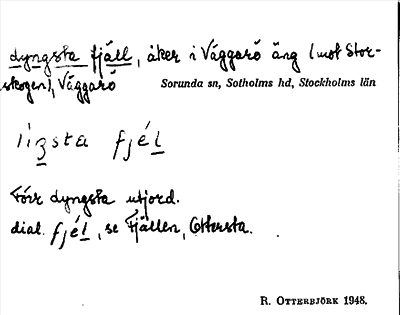 dyngsta fjäll, åker i Väggarö äng (mot Stor-
skogen), Väggarö
Sorunda sn, Sotholms hd, Stockholms län
fjél
Förr dyngsta utjord.
dial. fjél, se Fjällen, Ottersta.
R. Otterbjörk 1948.